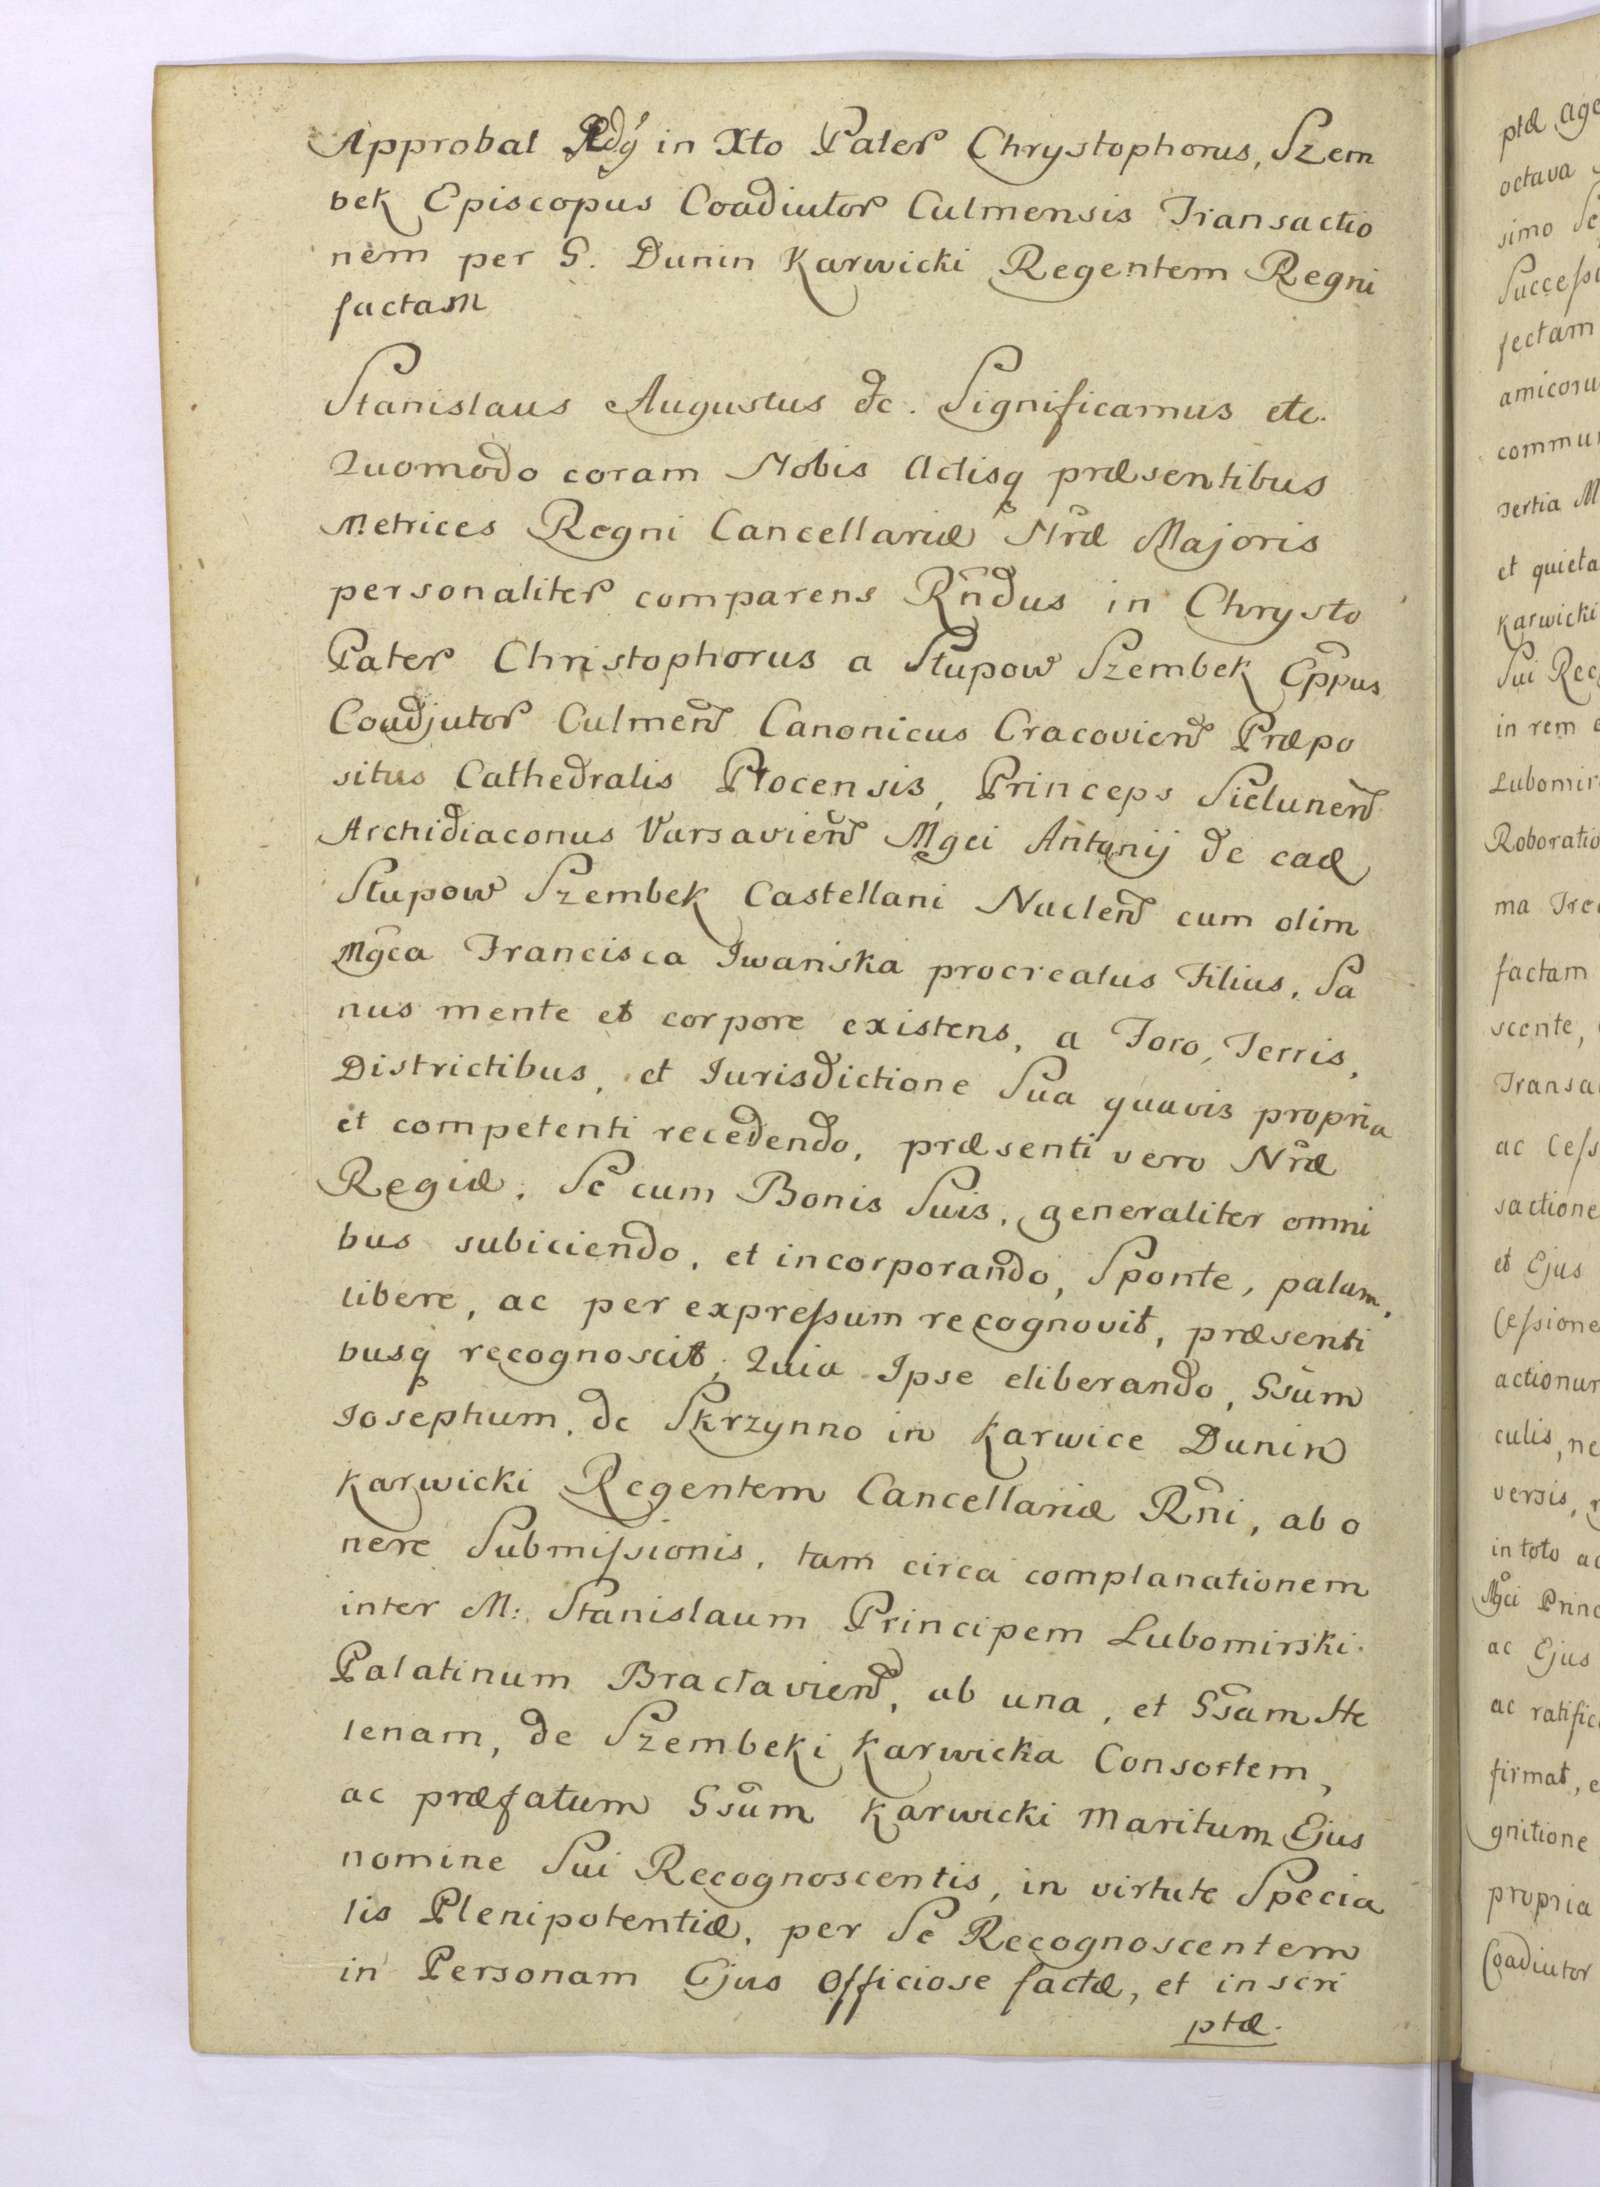 Approbat Rdq̃ in Xto Pater Chrystophorus, Szem
bek Episcopus Coadiutor Culmensis Transactio
nem per G. Dunin Karwicki Regentem Regni
factam
Stanislaus Augustus &c. Significamus etc.
Quomodo coram Nobis Actisq præsentibus
Metrices Regni Cancellariæ Nræ Majoris
personaliter comparens Rñdus in Chrysto
Pater Christophorus a Słupow Szembek Eppus
Coadjutor Culmen Canonicus Cracovien Præpo
situs Cathedralis Płocensis, Princeps Sielunen
Archidiaconus Varsavien Mgci Antonij de ead
Słupow Szembek Castellani Naclen cum olim
Mgca Francisca Iwańska procreatus Filius, Sa
nus mente et corpore existens, a Foro, Terris,
Districtibus, et Iurisdictione Sua quavis propria
et competenti recedendo, præsenti vero Nræ
Regiæ, Se cum Bonis Suis, generaliter omni
bus subiciendo, et incorporando, Sponte, palam,
libere, ac per expreſsum recognovit, præsenti
busq recognoscit; Quia Ipse eliberando, Gsum
Iosephum, de Skrzynno in Karwice Dunin
Karwicki Regentem Cancellariæ Rni, ab o
nere Submiſsionis, tam circa complanationem
inter M: Stanislaum Principem Lubomirski
Palatinum Bractavien, ab una, et Gsam He
lenam, de Szembeki Karwicka Consortem,
ac præfatum Gsum Karwicki Maritum Ejus
nomine Sui Recognoscentis, in virtute Specia
lis Plenipotentiæ, per Se Recognoscentem
in Personam Ejus Officiose factæ, et inscri
ptæ.
ptæ
octava
simo
fectam
commun
tertia M
et quieta
Karwicki
Sui Rec
in rem
Lubomir
Roboratio
factam
scente,
Transa
ac Ceſs
sactione
et Ejus
Ceſsione
actionum
culis, ne
versis,
in toto ac
Mgci Princ
ac Ejus
ac ratific
firmat, e
gnitione
propria
Coadiutor